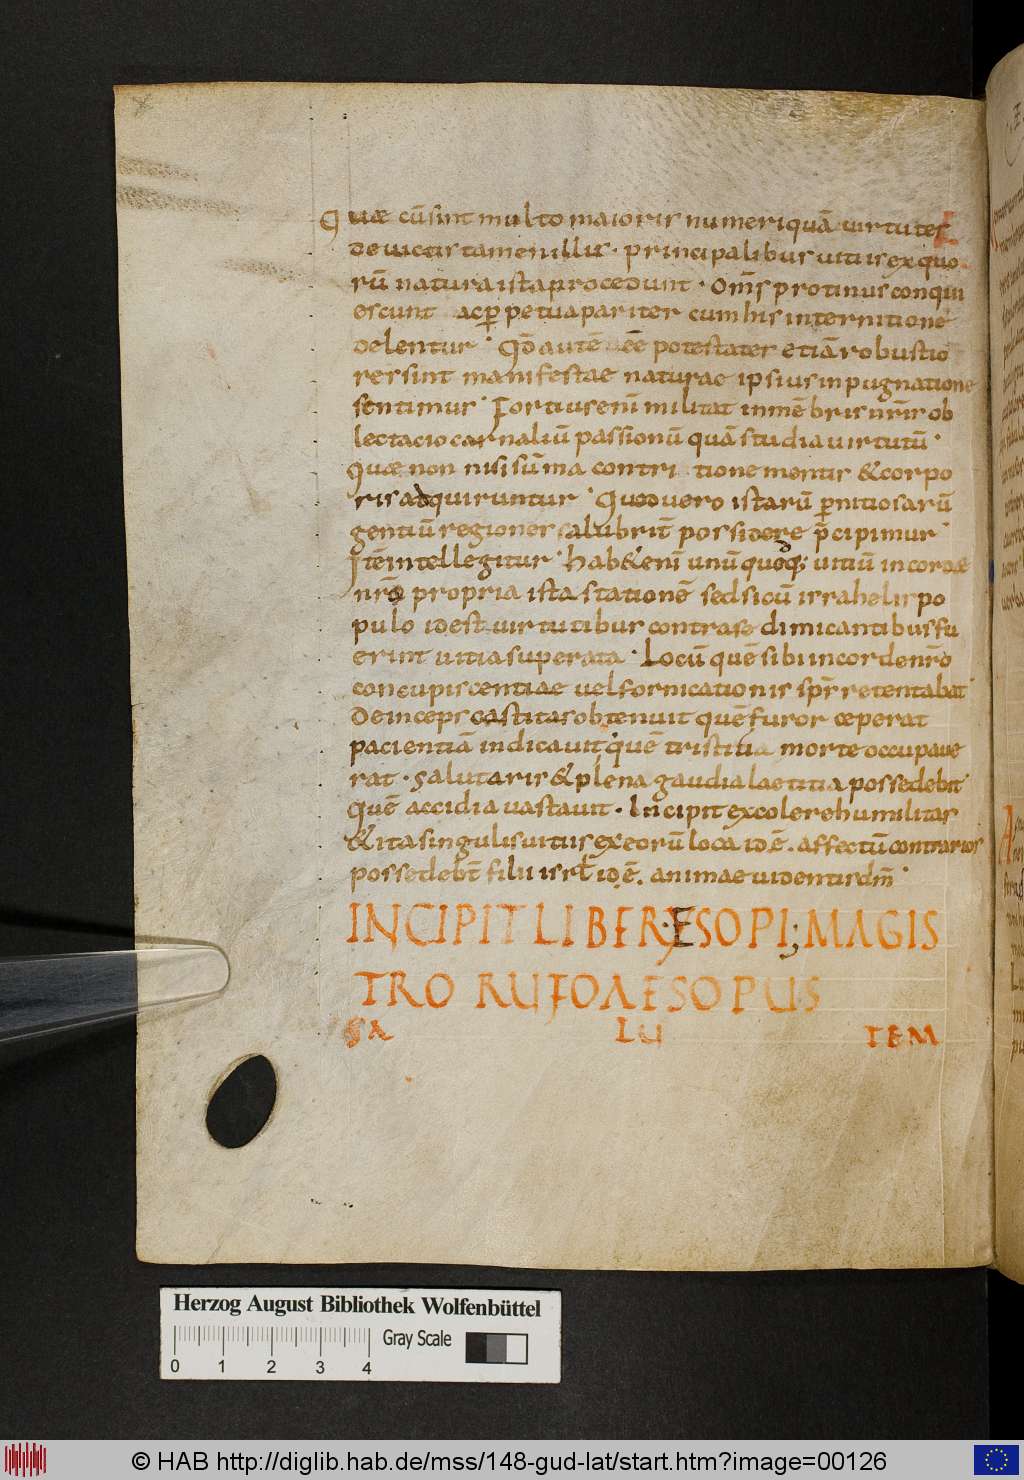 Quae cū sint multo maioris numeri quā uirtutes
deuictis tamen illis · principalibus uitiis ex quo
rū natura ista procedunt · om̄s protinus conqui
escunt ac p̲ petua pariter cum his internitione
delentur · Qd̄ autē potestates etiā robustio
res sint manifestae naturae ipsius inpugnatione
sentimus · Fortius enī militat in mēbris nr̄is ob
lectacio carnaliū passionū quā studia uirtutū ·
Quae non nisi sūma contri tione mentis & corpo
ris adquiruntur · Quod uero istarū p̲nitiosarū
gentiū regiones salubrit̄ possidere p̄cipimur ·
Ita intellegitur · hab& enī unū quodq; uitiū in corde
nr̄o propria ista stationē sed sicū israhelis po
pulo id est uirtutibus contra se dimicantibus fu
erint uitia superata · Locū quē sibi in corde nr̄o
concupiscentiae uel fornicationis sp̄s retentabat ·
Deinceps castitas obtenuit quē furor ceperat
pacientiā indicauit quē tristitia morte occupaue
rat · Salutaris & plena gaudia laetitia possedebit ·
quē accidia uastauit · Incipit excolere humilitas
& ita singulis uitiis ex eorū loca id ē . affectū contrarios
possedebt̄ filii isrl̄ id ē . animae uidentis dm̄ ·
INCIPIT LIBER ESOPI; MAGIS
TRO RUFO AESOPUS
SA LU TEM
Herzog August Bibliothek Wolfenbüttel
Gray Scale
0 1 2 3 4
© HAB http://diglib.hab.de/mss/148-gud-lat/start.htm?image=00126